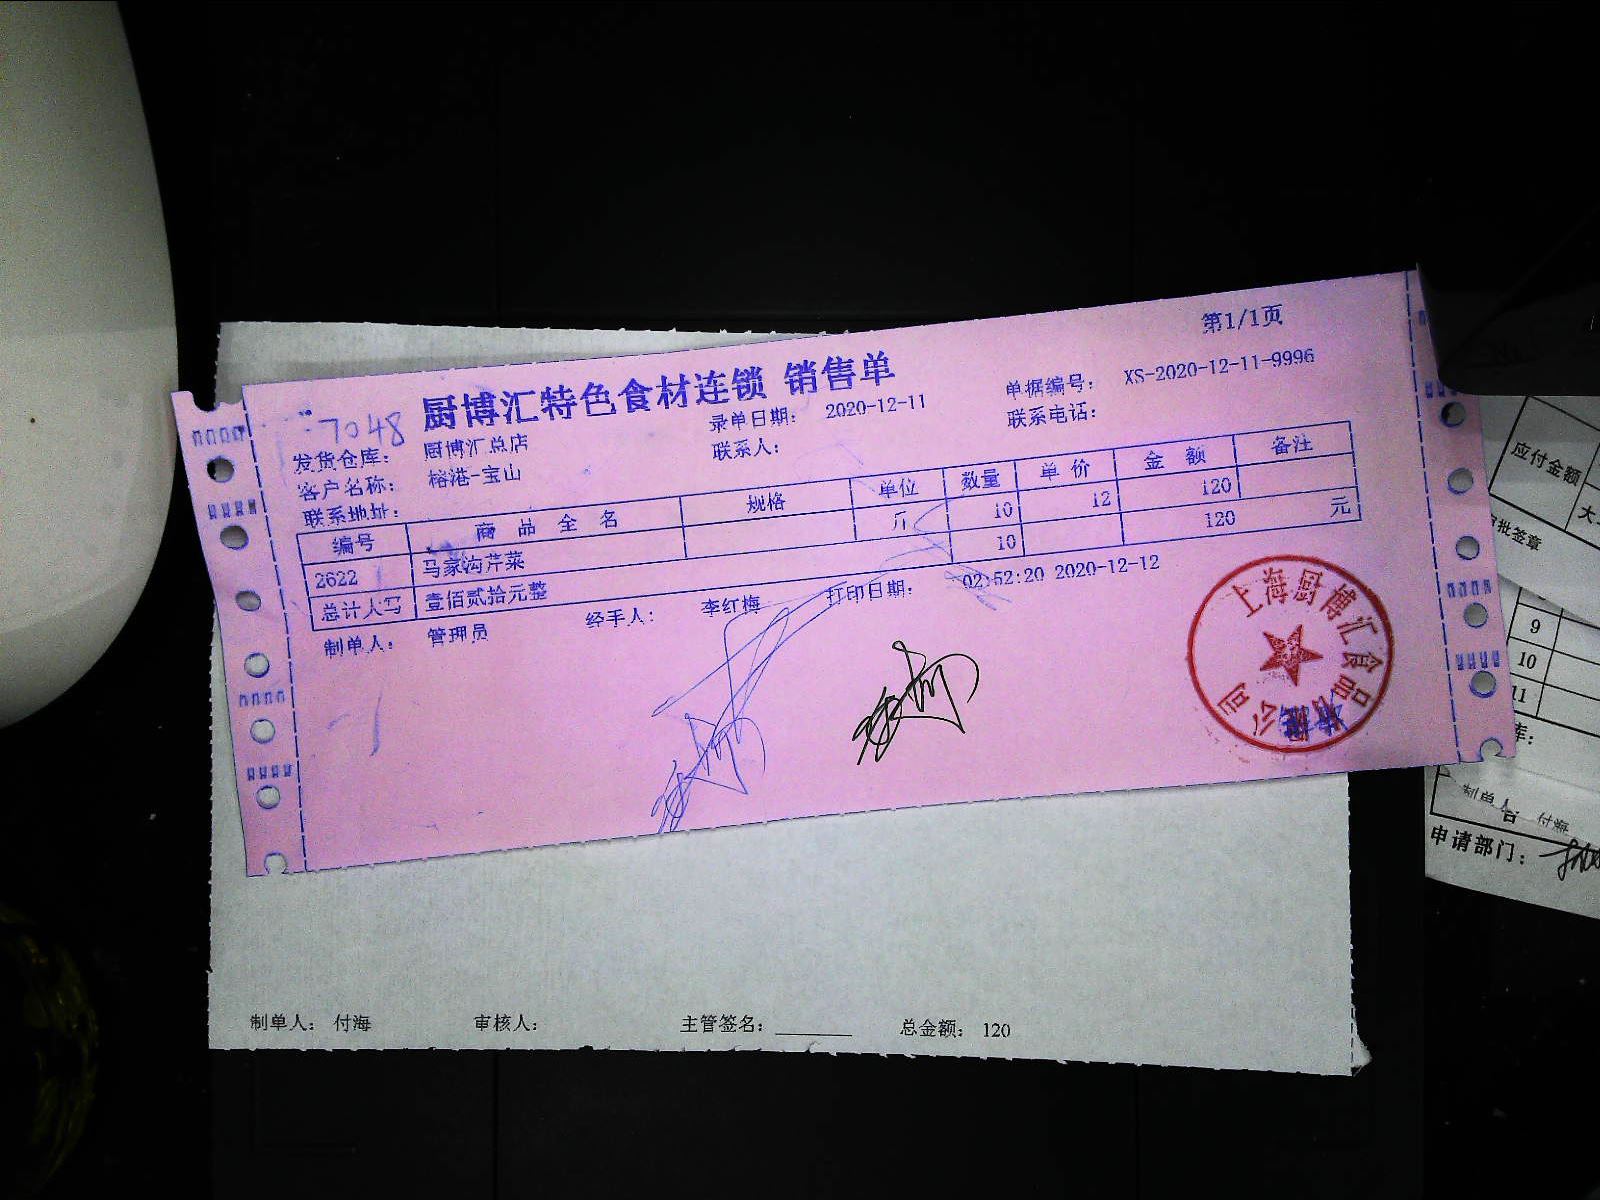 第1/1页
厨博汇特色食材连锁 销售单
7048
录单日期： 2020-12-11
单据编号： XS-2020-12-11-9996
发货仓库： 厨博汇总店
联系人：
联系电话：
客户名称： 榕港-宝山
联系地址：
编号 商品全名 规格 单位 数量 单价 金额 备注
2622 马家沟芹菜 斤 10 12 120
总计大写 壹佰贰拾元整 10 120 元
制单人： 管理员 经手人： 李红梅 打印日期： 02:52:20 2020-12-12
上海厨博汇食品有限公司
制单人： 付海 审核人： 主管签名： 总金额： 120
应付金额
大
审批签章
9
10
11
库：
制单人 付海
申请部门：